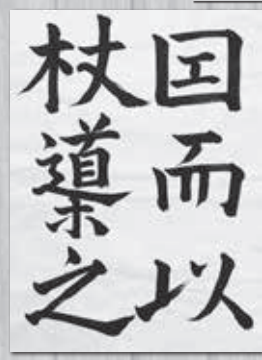 因而以
杖導之